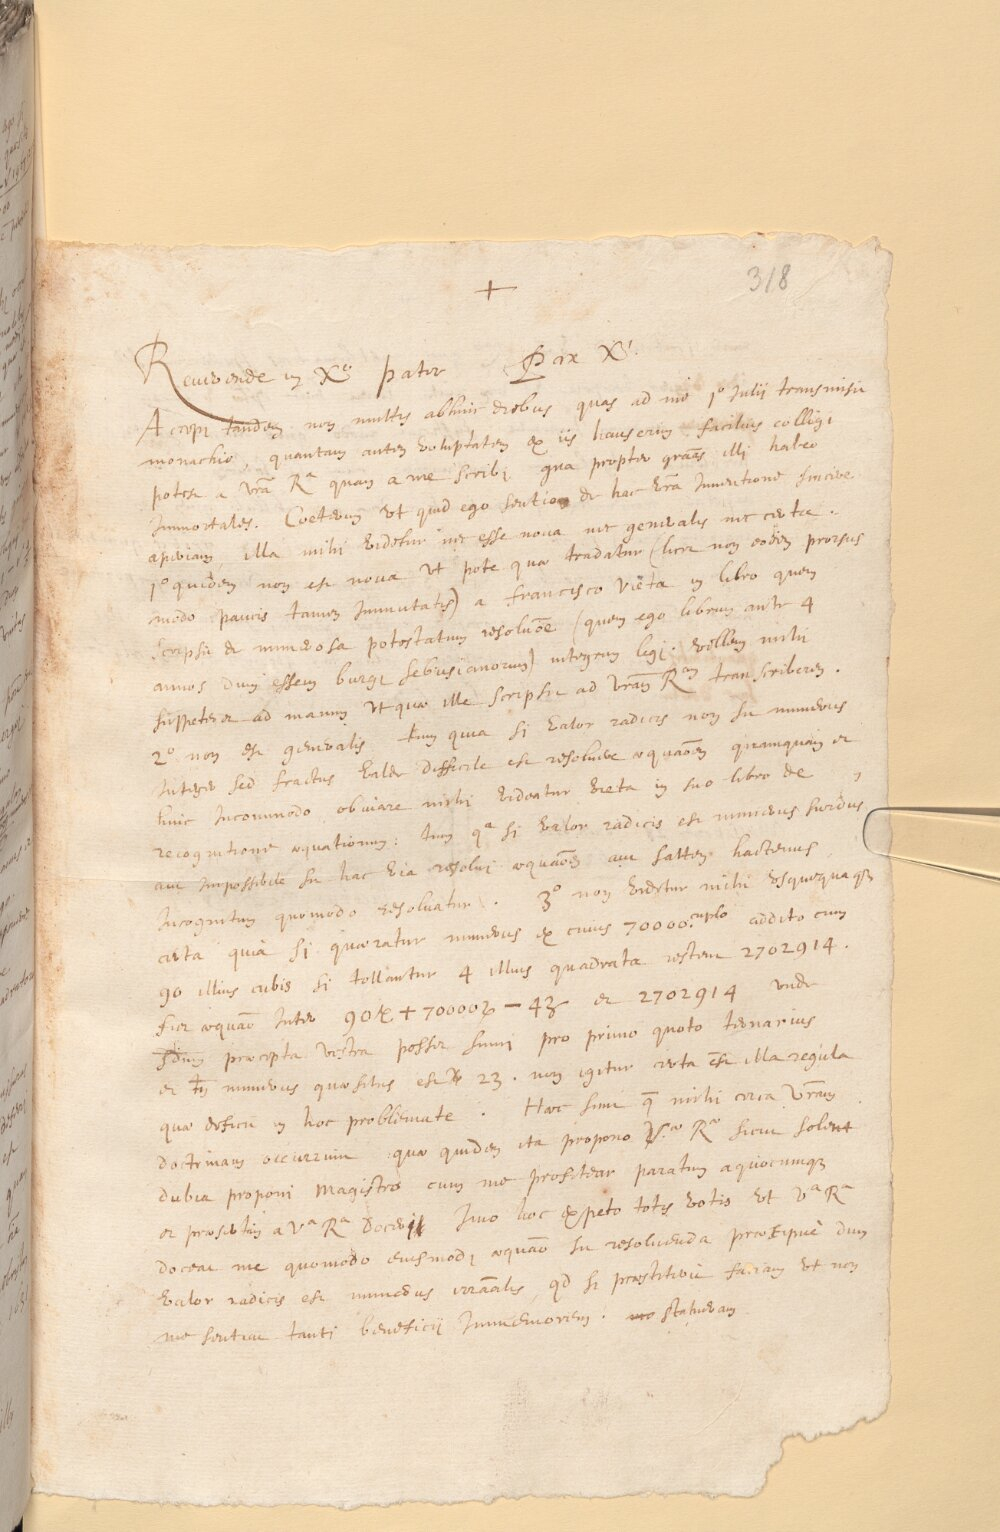 +
318
Reuerende in Xo pater Pax Xi.
Accepi tandem non multis abhinc diebus quas ad me 1o Iulii transmisit
monachio, quantam autem voluptatem ex iis hauserim facilius colligi
potest a vrã Ra quam a me scribi qua propter grãas illi habeo
Immortales. Coeterum vt quid ego sentio de hac vrã Inuentione sincere
aperiam, illa mihi videtur nec esse noua nec generalis nec certa.
1o quidem non est noua vt pote quæ tradatur (licet non eodem prorsus
modo paucis tamen Immutatis) a francisco vieta in libro quem
scripsit de numerosa potestatum resoluõe (quem ego librum ante 4
annos dum essem burgi sebusianorum) integrum legi. vellem mihi
suppeteret ad manum vt quæ ille scripsit ad vrãm Ram transcriberem.
2o non est generalis tum quia si valor radicis non sit numerus
Integer sed fractus valde difficile est resoluere æquaõem quamquam et
huic Incommodo obuiare mihi videatur vieta in suo libro de
recognitione æquationum: tum qa si valor radicis est numerus surdus,
aut Impossibile sit hac via resolui æquaõem aut saltem hactenus
Incognitum quomodo resoluatur. 3o non videtur mihi vsquequaqȝ
certa quia si quæratur numerus ex cuius 70000cuplo addito cum
90 illius cubis si tollantur 4 illius quadrata restent 2702914.
fiet æquaõ Inter 90 + 70000 – 4 et 2702914 vnde
sdum præcepta vestra posset sumi pro primo quoto ternarius
et tñ numerus quæsitus est 23. non igitur certa est illa regula
quæ deficit in hoc problemate. Hæc sunt quæ mihi circa vrãm
doctrinam occurrunt quæ quidem ita propono Væ Ræ sicut solent
dubia proponi Magistro cum me profitear paratum a quocumqȝ
et præsertim a Va Ra doceri Imo hoc expeto totis votis vt Va Ra
doceat me quomodo eiusmodi æquaõ sit resoluenda præcipuè dum
valor radicis est numerus irrãalis, qd si præstiterit faciam vt non
me sentiat tanti beneficii Immemorem. statueram